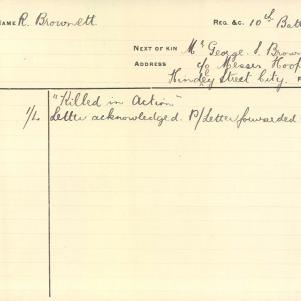 NAME R. Brownett
REG. &C. 10th Batt
NEXT OF KIN Mr George S. Brown
ADDRESS c/o Messrs Hoop
Hindley Street City.
"Killed in Action"
1/L Letter acknowledged. P/Letter forwarded